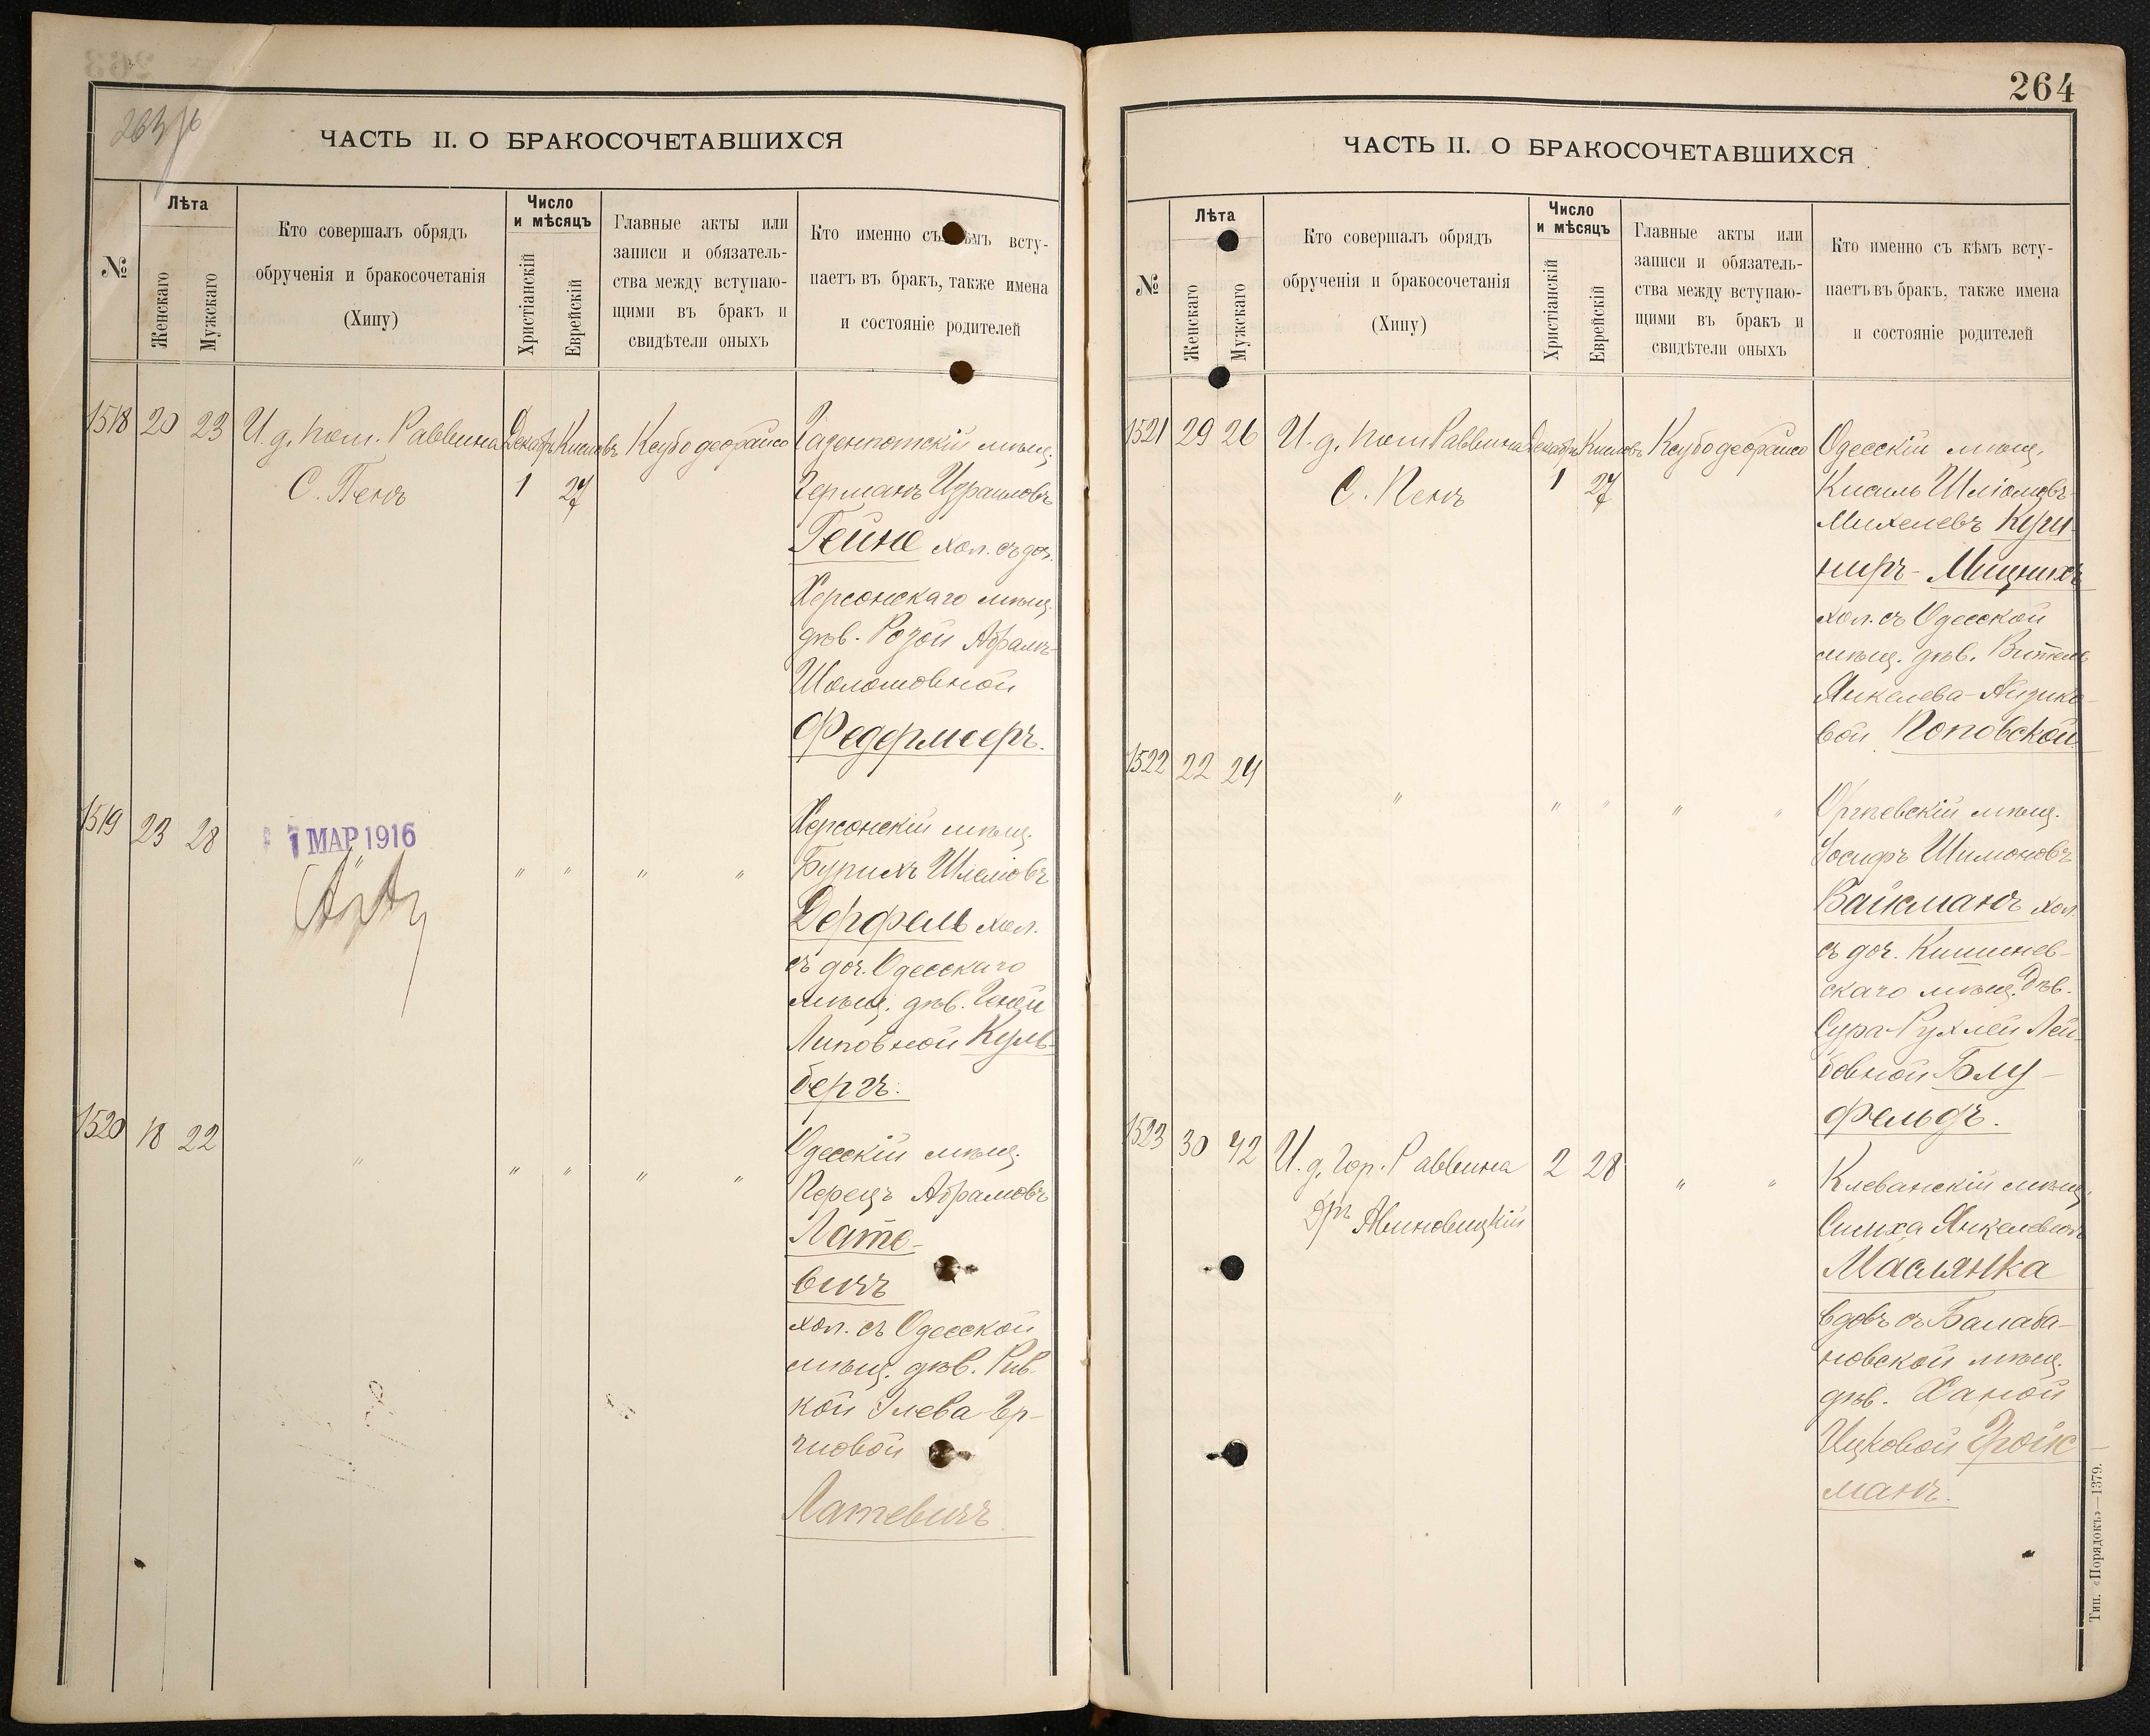 263об
ЧАСТЬ II. О БРАКОСОЧЕТАВШИХСЯ
№
Лѣта
Женскаго
Мужскаго
Кто совершалъ обрядъ
обрученія и бракосочетанія
(Хипу)
Число
и мѣсяцъ
Христіанскій
Еврейскій
Главные акты или
записи и обязатель-
ства между вступаю-
щими въ бракъ и
свидѣтели оныхъ
Кто именно съ кѣмъ всту-
паетъ въ бракъ, также имена
и состояніе родителей
1518 20 23 И. д. пом. Раввина Декабрь Кислевъ Ксубо деорайсо Газенпотскій мѣщ.
С. Пенъ 1 27 Германъ Израилевъ
Гейне хол. съ доч.
Херсонскаго мѣщ.
дѣв. Розой Абрамъ-
Шоломовной
Федермееръ.
1519 23 28 Херсонскій мѣщ.
1 МАР 1916
" " " " Бурихъ Шлемовъ
Дерфель хол.
съ доч. Одесскаго
мѣщ. дѣв.
Липовной Куль-
бергъ.
1520 18 22 Одесскій мѣщ.
" " " " " Перецъ Абрамовъ
Лате-
вичъ
хол. съ Одесской
мѣщ. дѣв. Рив-
кой Элева-Гер-
шовой
Латевичъ
264
ЧАСТЬ II. О БРАКОСОЧЕТАВШИХСЯ
№
Лѣта
Женскаго
Мужскаго
Кто совершалъ обрядъ
обрученія и бракосочетанія
(Хипу)
Число
и мѣсяцъ
Христіанскій
Еврейскій
Главные акты или
записи и обязатель-
ства между вступаю-
щими въ бракъ и
свидѣтели оныхъ
Кто именно съ кѣмъ всту-
паетъ въ бракъ, также имена
и состояніе родителей
1521 29 26 И. д. пом Раввина Декабрь Кислевъ Ксубо деорайсо Одесскій мѣщ.
С. Пенъ 1 27 Кисиль Шліомовъ-
Михелевъ
хол. съ Одесской
мѣщ. дѣв.
Янкелева-Айзико-
вой Поповской
1522 22 24
" " " " " Оргѣевскій мѣщ.
Іосифъ Шимоновъ
Вайсманъ хол.
съ доч. Кишинев-
скаго мѣщ. Дѣв.
Сура-Рухлей Лей-
бовной Блу-
фельдъ.
1523 30 42 И. д. Гор. Раввина 2 28 " " Клеванскій мѣщ.
Дръ Авиновицкій Симха Янкелевичъ
Маслянка
вдовъ съ Балаба-
новской мѣщ.
дѣв. Ханой
Ицковой Гройс-
манъ.
Тип. «Порядокъ»—1379.